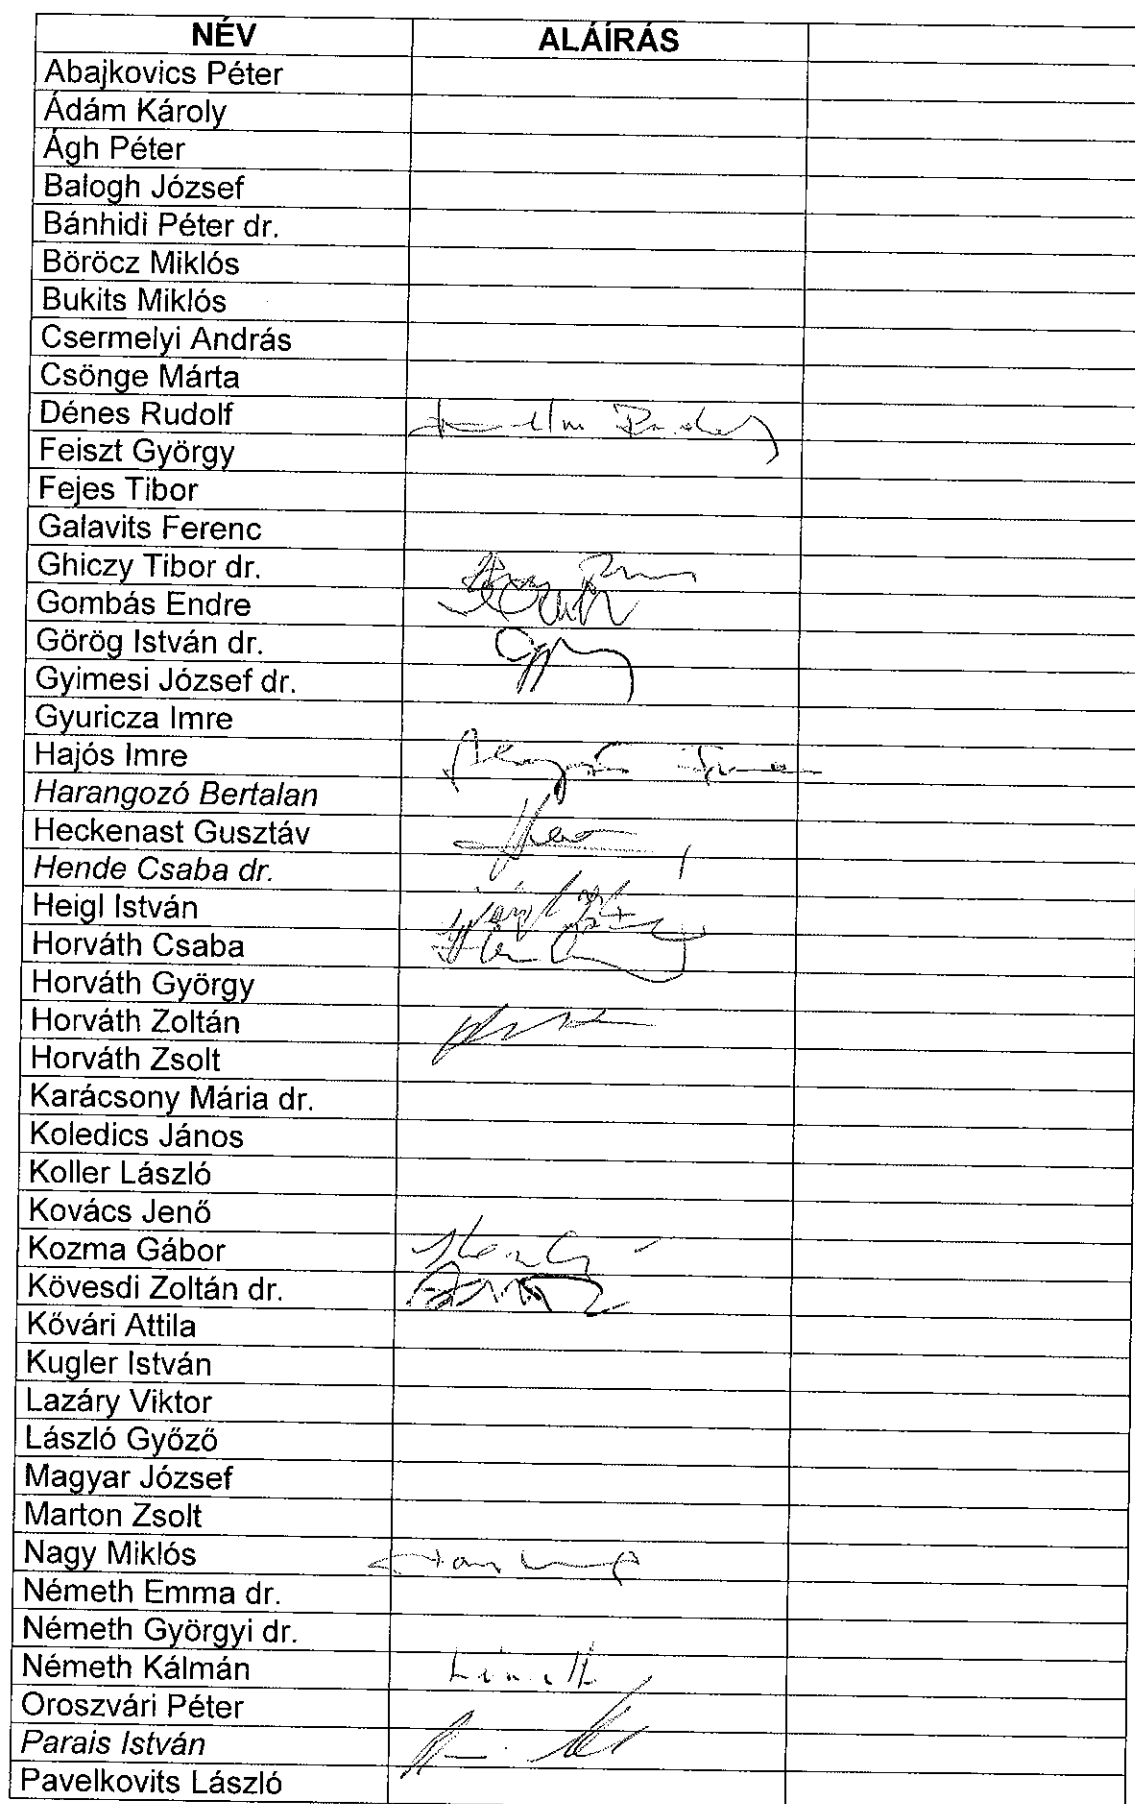 NÉV ALÁÍRÁS
Abajkovics Péter
Ádám Károly
Ágh Péter
Balogh József
Bánhidi Péter dr.
Böröcz Miklós
Bukits Miklós
Csermelyi András
Csönge Márta
Dénes Rudolf
Feiszt György
Fejes Tibor
Galavits Ferenc
Ghiczy Tibor dr.
Gombás Endre
Görög István dr.
Gyimesi József dr.
Gyuricza Imre
Hajós Imre
Harangozó Bertalan
Heckenast Gusztáv
Hende Csaba dr.
Heigl István
Horváth Csaba
Horváth György
Horváth Zoltán
Horváth Zsolt
Karácsony Mária dr.
Koledics János
Koller László
Kovács Jenő
Kozma Gábor
Kövesdi Zoltán dr.
Kővári Attila
Kugler István
Lazáry Viktor
László Győző
Magyar József
Marton Zsolt
Nagy Miklós
Németh Emma dr.
Németh Györgyi dr.
Németh Kálmán
Oroszvári Péter
Parais István
Pavelkovits László